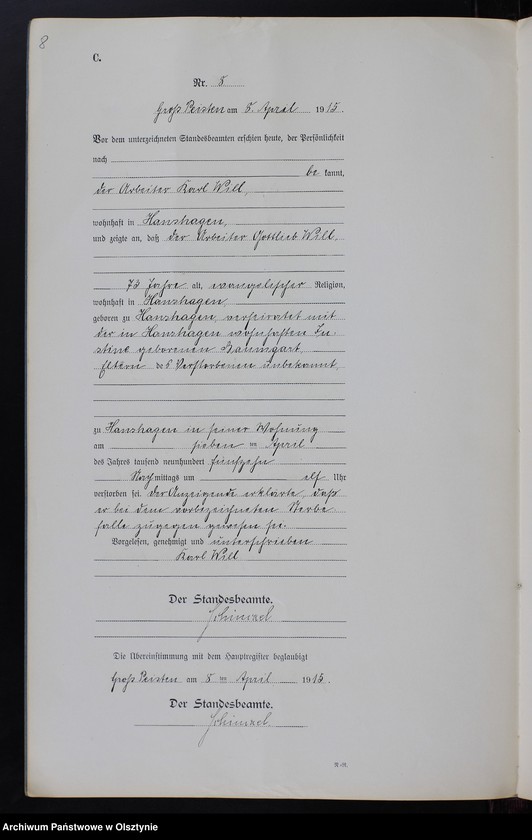 8
C.
Nr. 8
Groß Peisten am 8. April 1915.
Vor dem unterzeichneten Standesbeamten erschien heute, der Persönlichkeit
nach
be kannt,
der Arbeiter Karl Will,
wohnhaft in Hanshagen,
und zeigte an, daß der Arbeiter Gottlieb Will,
73 Jahre alt, evangelischer Religion,
wohnhaft in Hanshagen,
geboren zu Hanshagen, verheiratet mit
der in Hanshagen wohnhaften Ju-
stine geborenen Baumgart,
Eltern des Verstorbenen unbekannt,
zu Hanshagen in seiner Wohnung
am sieben ten April
des Jahres tausend neunhundert fünfzehn
Nach mittags um elf Uhr
verstorben sei. Der Anzeigende erklärte, daß
er bei dem vorbezeichneten Sterbe
falle zugegen gewesen sei.
Vorgelesen, genehmigt und unterschrieben
Karl Will
Der Standesbeamte.
Schinzel
Die Übereinstimmung mit dem Hauptregister beglaubigt
Groß Peisten am 8 ten April 1915.
Der Standesbeamte.
Schinzel
Archiwum Państwowe w Olsztynie